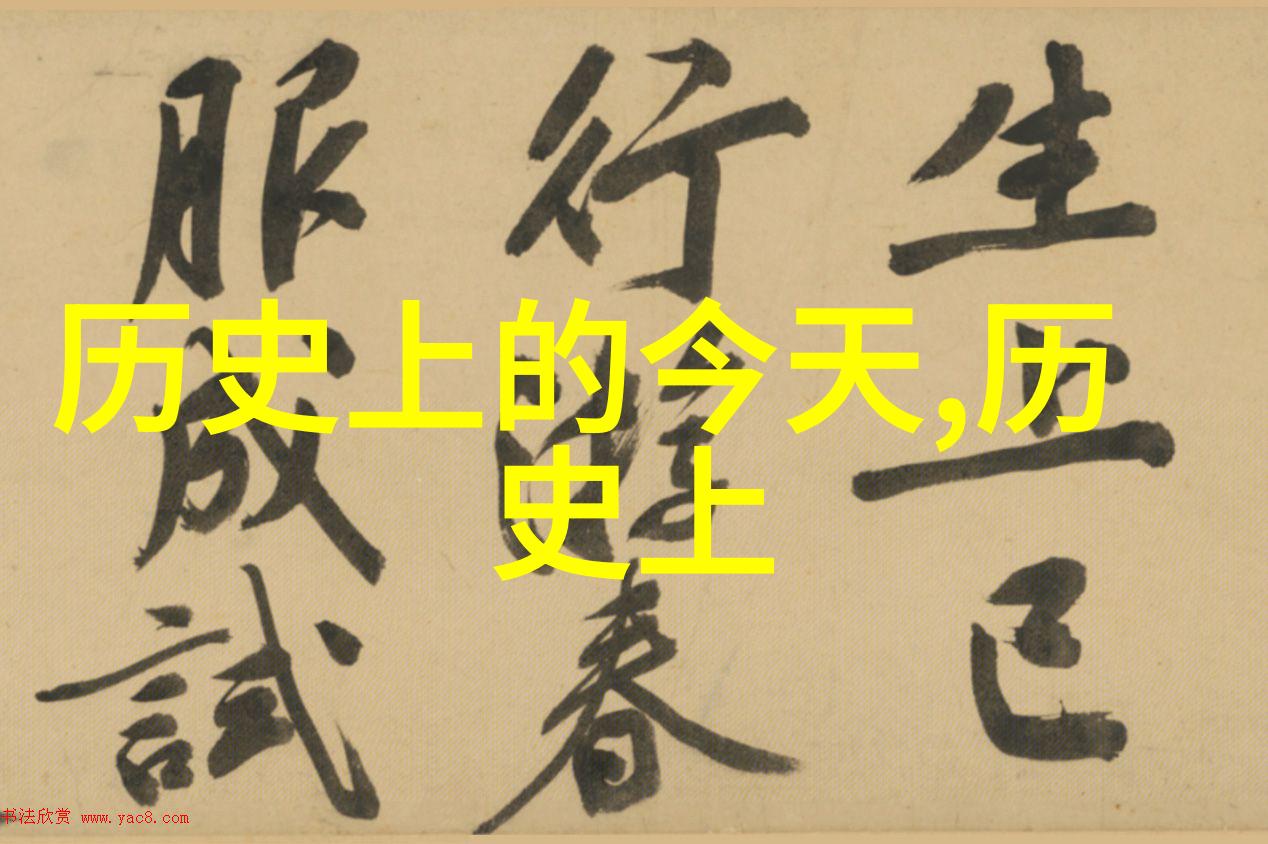 历史上的今天,历
史上
生上巳
行春
服成試
书法欣赏 www.yac8.com